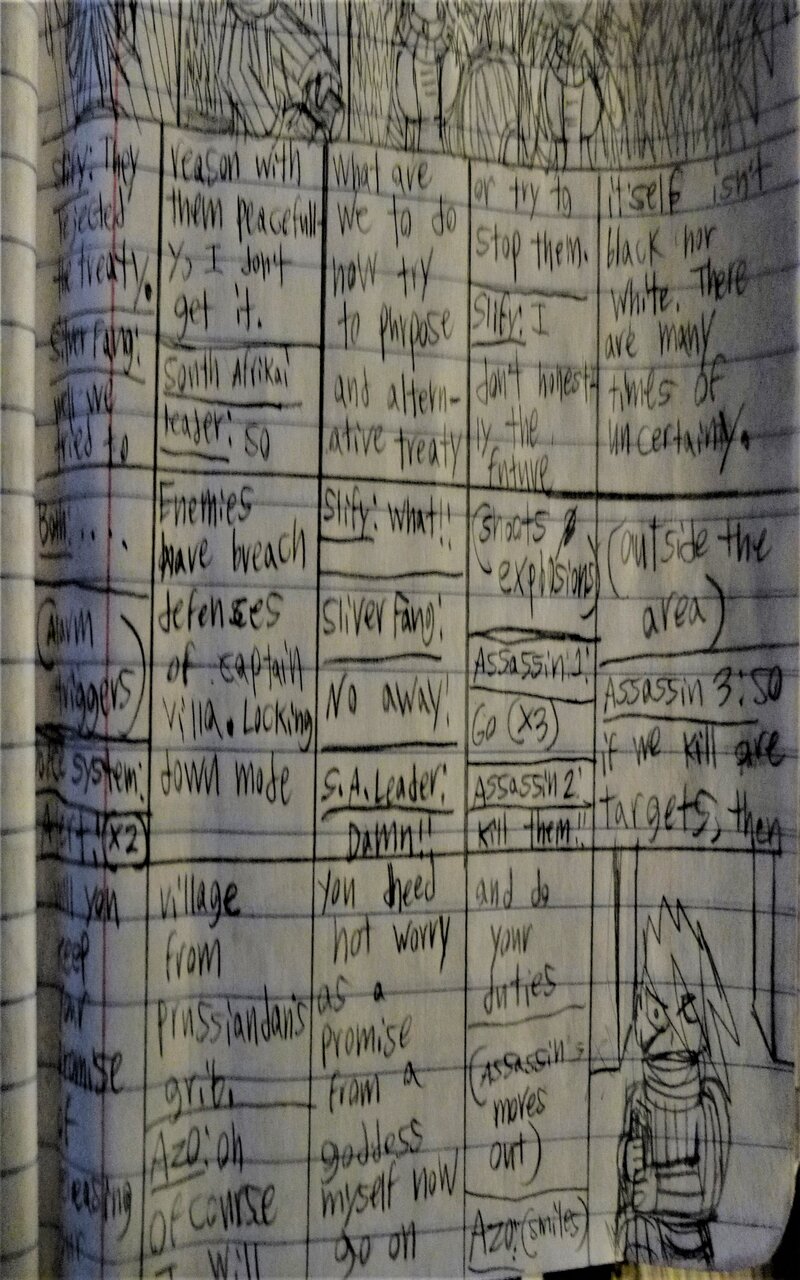 Slify: They
rejected
the treaty.
Silver Fang:
well we
tried to
reason with
them peacefull-
y, I don't
get it.
South Afrikai
leader: so
what are
we to do
now try
to phrpose
and altern-
ative treaty
or try to
stop them.
Slify: I
don't honest-
ly the
future
itself isn't
black nor
white. There
are many
times of
uncertainty.
Both: ....
(Alarm
triggers)
system:
Alert! (x2)
Enemies
have breach
defenses
of captain
villa. Locking
down mode
Slify: what!!
Sliver Fang:
No away!
S.A. Leader:
DaMn!!
(shoots
explosions)
Assassin 1:
Go (x3)
Assassin 2:
Kill them!!
(outside the
area)
Assassin 3: so
if we kill are
targets, then
will you
keep
your
promise
of
village
from
prussiandan's
grib.
Azo: oh
of course
I will
you need
not worry
as a
promise
from a
goddess
myself now
go on
and do
your
duties
(Assassin's
moves
out)
Azo: (smiles)